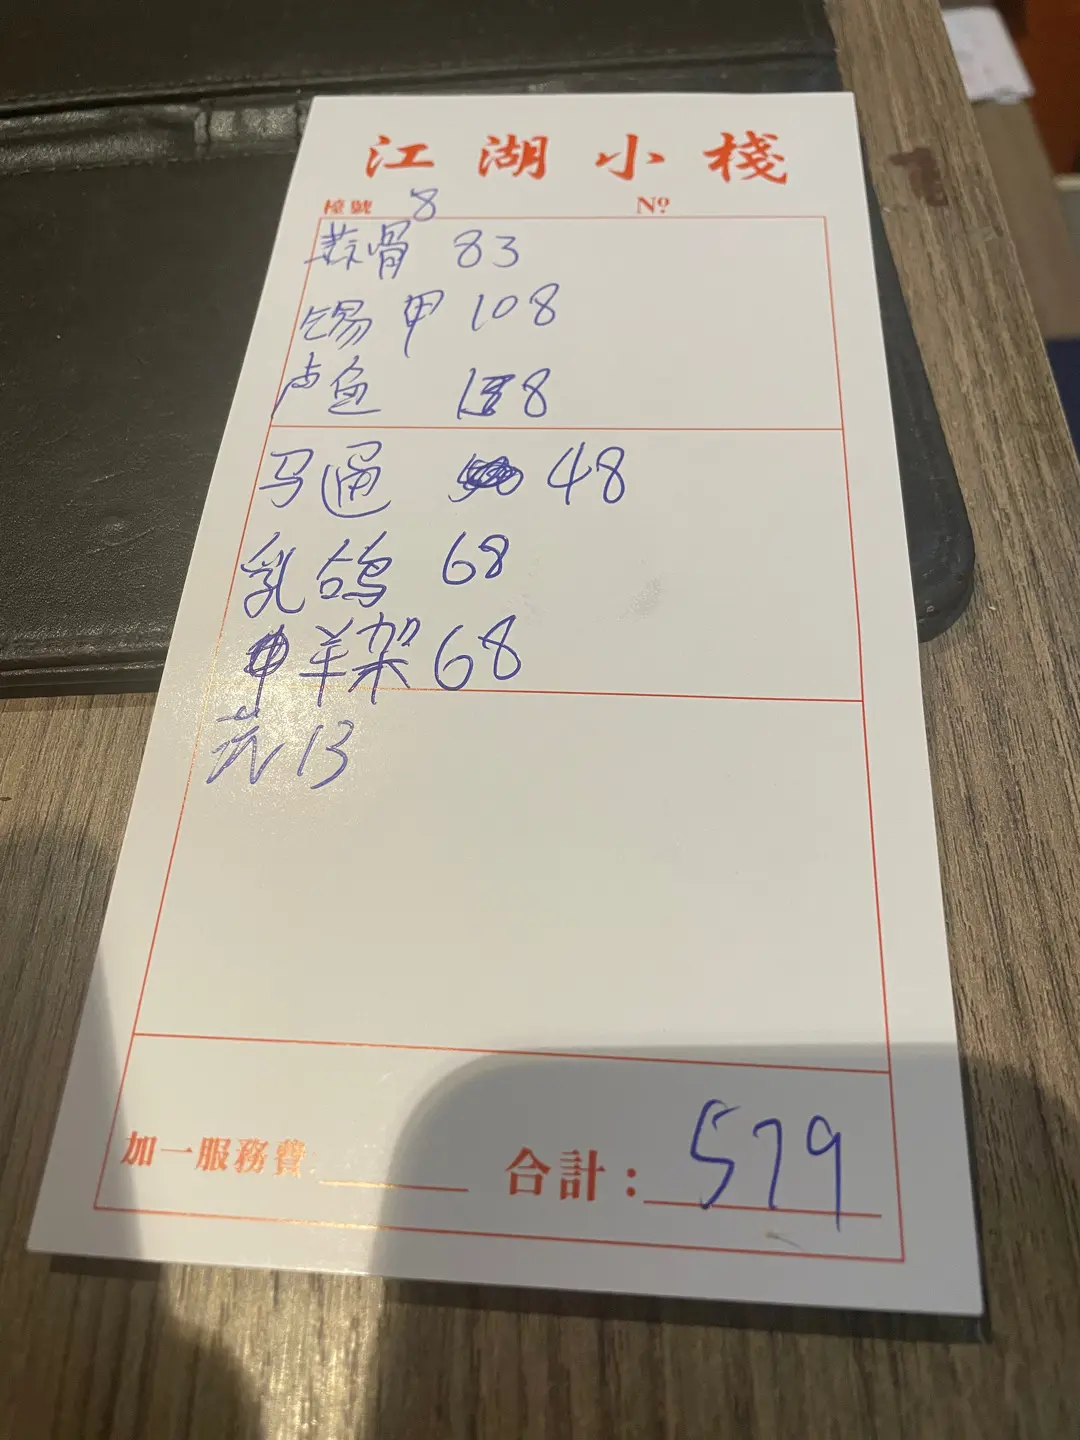 江湖小棧
檯號 8 Nº
蒜骨 83
锡甲 108
卢鱼 8
马通 48
乳鸽 68
羊架 68
六 13
加一服務費: 合計: 579